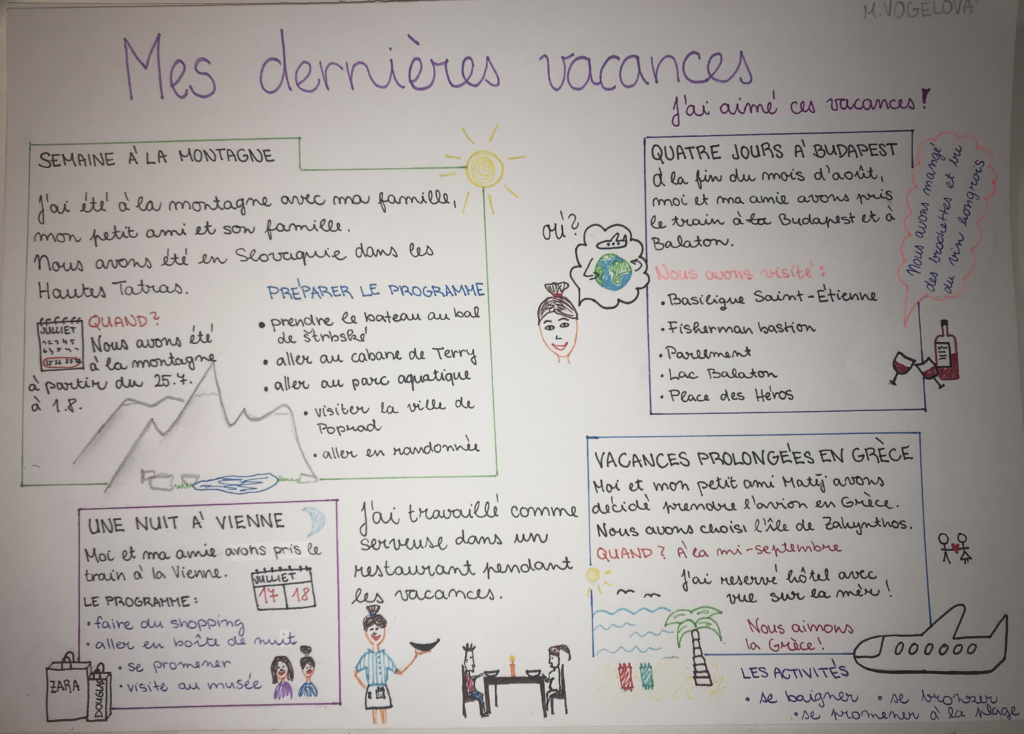 M. VOGELOVÁ
Mes dernières vacances
J'ai aimé ces vacances!
SEMAINE A' LA MONTAGNE
J'ai été à la montagne avec ma famille,
mon petit ami et son famille.
Nous avons été en Slovaquie dans les
Hautes Tatras.
JUILLIET
QUAND?
Nous avons été
à la montagne
à partir du 25.7.
à 1.8.
PRÉPARER LE PROGRAMME
• prendre le bateau au bal
de štrbské
• aller au cabane de Terry
• aller au parc aquatique
• visiter la ville de
Poprad
• aller en randonnée
où?
QUATRE JOURS A' BUDAPEST
à la fin du mois d'août,
moi et ma amie avons pris
le train à Budapest et à
Balaton.
Nous avons visité:
• Basilique Saint-Étienne
• Fisherman bastion
• Parlement
• Lac Balaton
• Place des Héros
Nous avons mangé
des brochettes et bu
du vin hongrois
UNE NUIT A' VIENNE
Moi et ma amie avons pris le
train à la Vienne.
JUILLIET
17 18
LE PROGRAMME:
• faire du shopping
• aller en boîte de nuit
• se promener
• visite au musée
ZARA
DOUGLAS
J'ai travaillé comme
serveuse dans un
restaurant pendant
les vacances.
VACANCES PROLONGÉES EN GRÈCE
Moi et mon petit ami Matěj avons
décidé prendre l'avion en Grèce.
Nous avons choisi l'île de Zakynthos.
QUAND? A' la mi-septembre
J'ai reservé hôtel avec
vue sur la mèr!
Nous aimons
la Grèce!
LES ACTIVITÉS
• se baigner • se bronzer
• se promener à la plage